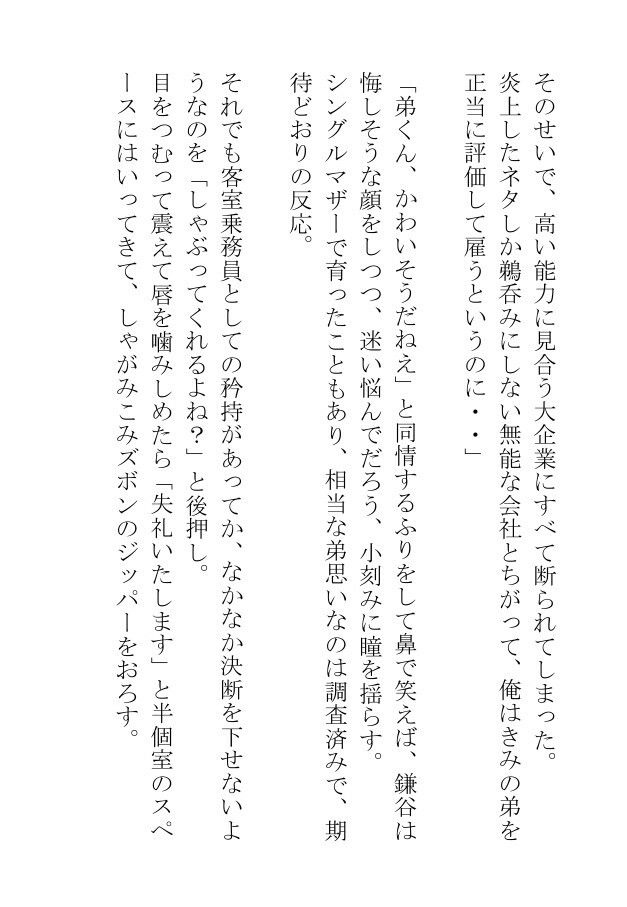 そのせいで、高い能力に見合う大企業にすべて断られてしまった。
炎上したネタしか鵜呑みにしない無能な会社とちがって、俺はきみの弟を
正当に評価して雇うというのに・・」
「弟くん、かわいそうだねえ」と同情するふりをして鼻で笑えば、鎌谷は
悔しそうな顔をしつつ、迷い悩んでだろう、小刻みに瞳を揺らす。
シングルマザーで育ったこともあり、相当な弟思いなのは調査済みで、期
待どおりの反応。
それでも客室乗務員としての矜持があってか、なかなか決断を下せないよ
うなのを「しゃぶってくれるよね？」と後押し。
目をつむって震えて唇を噛みしめたら「失礼いたします」と半個室のスペ
ースにはいってきて、しゃがみこみズボンのジッパーをおろす。